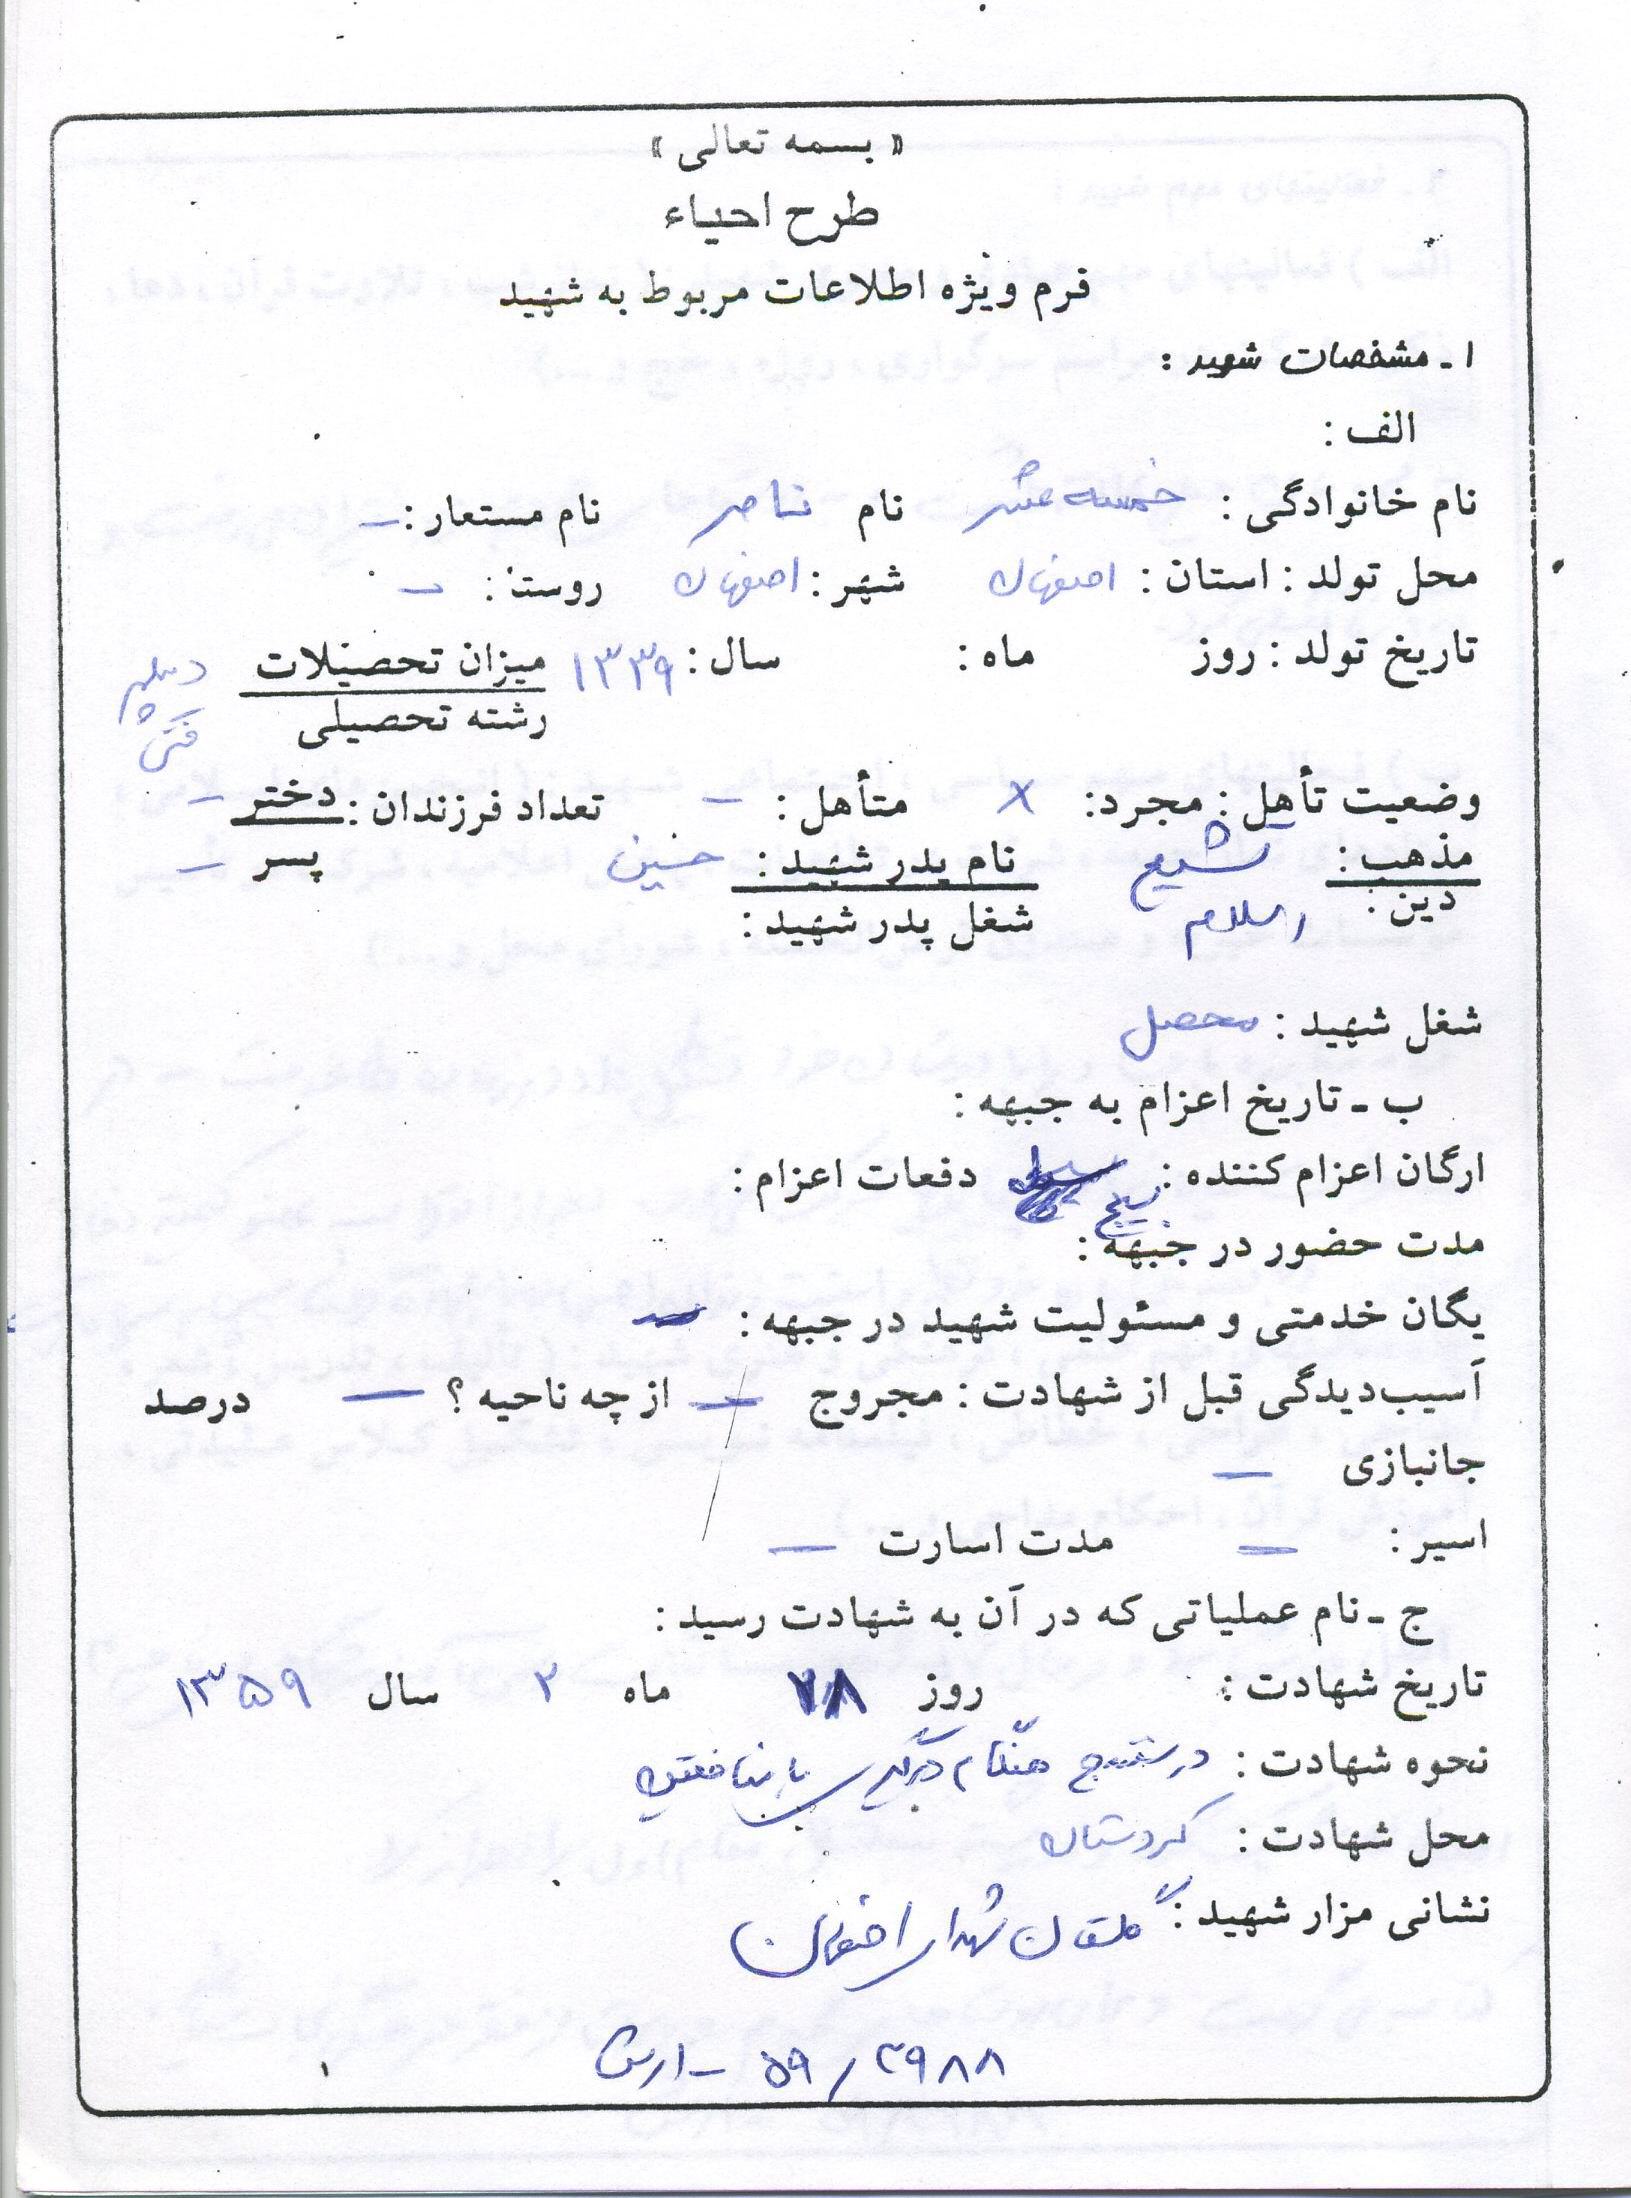 « بسمه تعالی »
طرح احیاء
فرم ویژه اطلاعات مربوط به شهید
۱ ـ مشخصات شهید :
الف :
نام خانوادگی : خمسه عشر نام ناصر نام مستعار : –
محل تولد : استان : اصفهان شهر : اصفهان روستا : –
تاریخ تولد : روز ماه : سال : ۱۳۳۹ میزان تحصیلات دیپلم
رشته تحصیلی فنی
وضعیت تأهل : مجرد : × متأهل : – تعداد فرزندان : دختر –
مذهب : تشیع نام پدر شهید : حسین پسر –
دین : اسلام شغل پدر شهید :
شغل شهید : محصل
ب ـ تاریخ اعزام به جبهه :
ارگان اعزام کننده : بسیج دفعات اعزام :
مدت حضور در جبهه :
یگان خدمتی و مسئولیت شهید در جبهه : –
آسیب‌دیدگی قبل از شهادت : مجروح – از چه ناحیه ؟ – درصد
جانبازی –
اسیر : – مدت اسارت –
ج ـ نام عملیاتی که در آن به شهادت رسید :
تاریخ شهادت : روز ماه ۲ سال ۱۳۵۹
نحوه شهادت : در سنندج هنگام درگیری با منافقین
محل شهادت : کردستان
نشانی مزار شهید : گلستان شهدای اصفهان
۵۹/۲۹۸۸ – ارتش